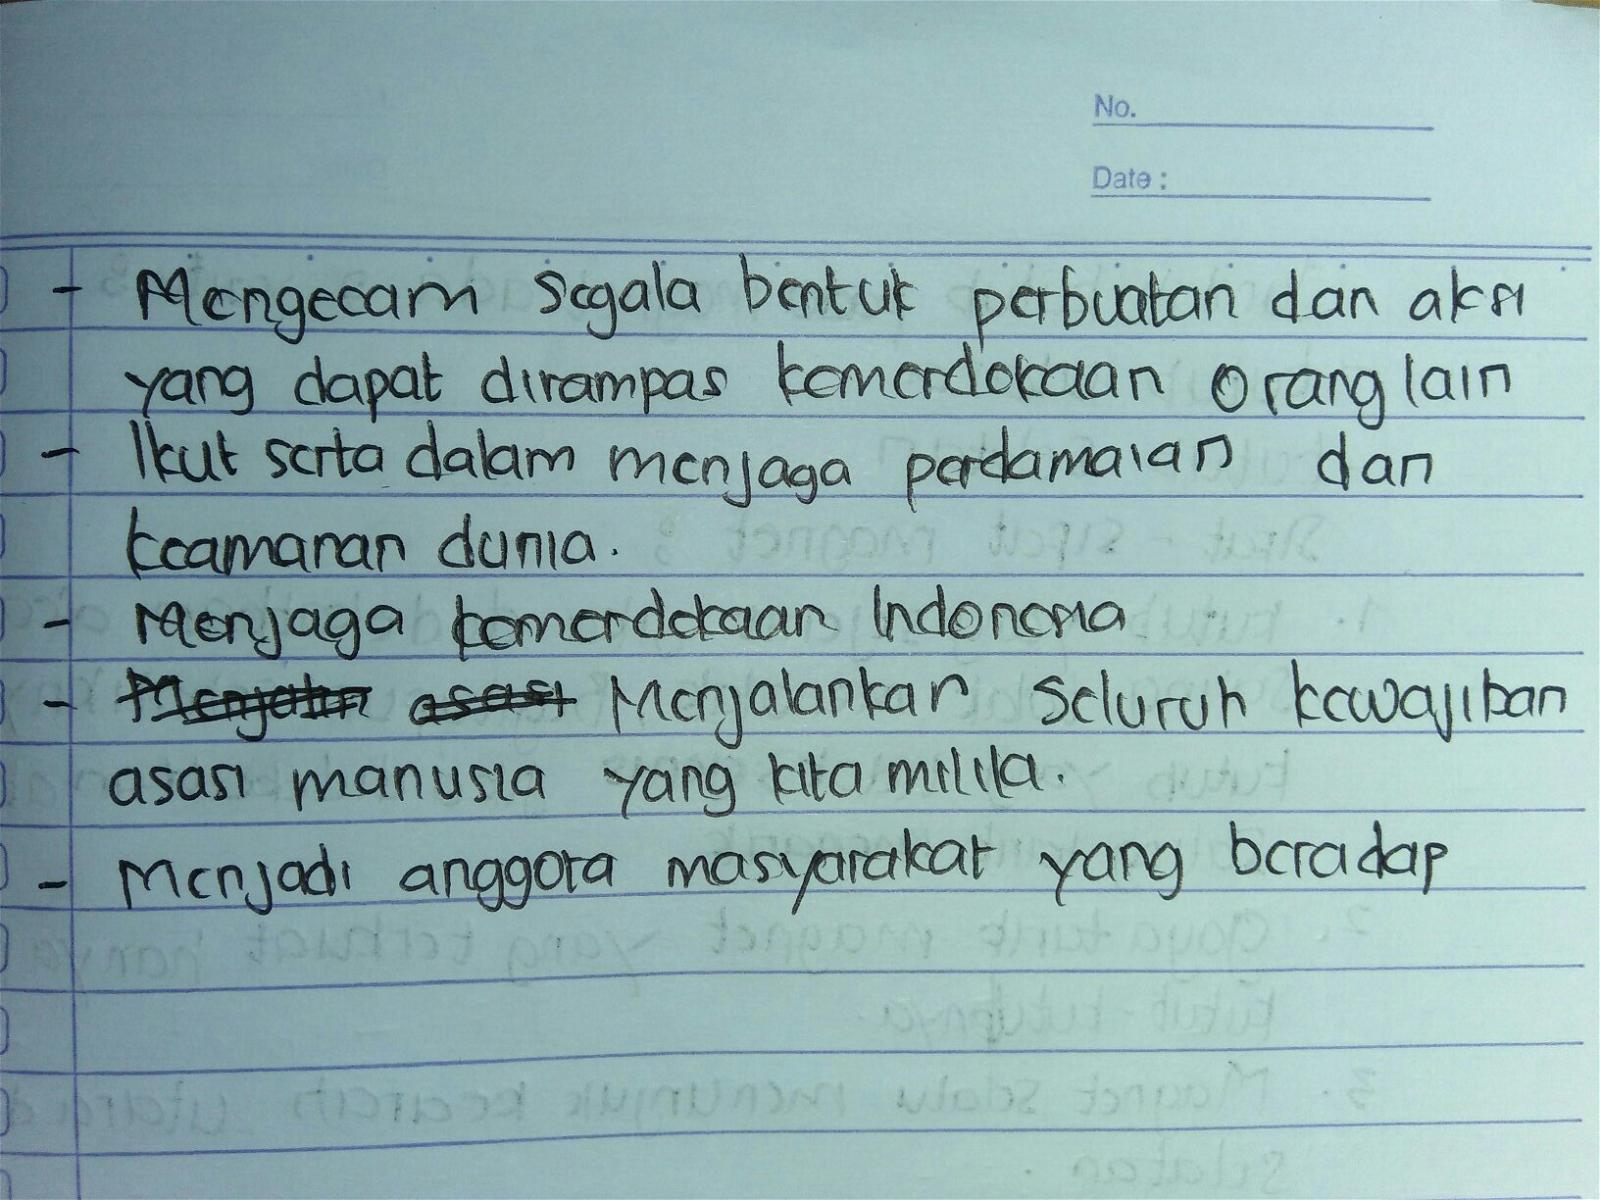 No.
Date :
- Mengecam segala bentuk perbuatan dan aksi
yang dapat dirampas kemerdekaan orang lain
- Ikut serta dalam menjaga perdamaian dan
keamanan dunia.
- Menjaga kemerdekaan Indonesia
- Menjalankan seluruh kewajiban
asasi manusia yang kita milila.
- Menjadi anggota masyarakat yang beradap